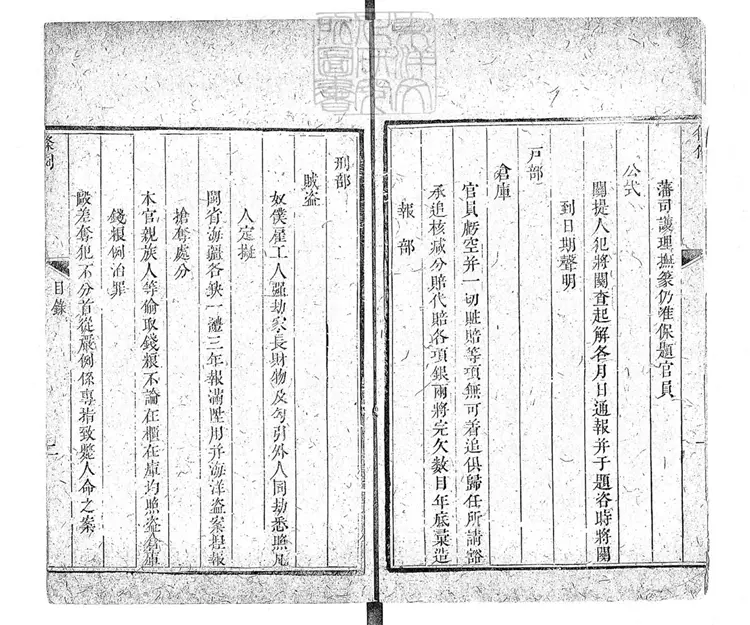 藩司護理撫篆仍准保題官員
公式
關提人犯將關查起解各月日通報并于題咨時將關
到日期聲明
戸部
倉庫
官員虧空并一切賍賠等項無可着追俱歸任所請豁
承追核减分賠代賠各項銀兩將完欠數目年底彚造
報部
刑部
賊盜
奴僕雇工人强劫家長財物及勾引外人同劫悉照凡
人定擬
閩省海疆各缺一體三年報滿陞用并海洋盗案摠報
搶奪處分
本官親族人等偷取錢粮不論在櫃在庫均照盗倉庫
錢粮例治罪
毆差奪犯不分首從嚴例係專指致斃人命之案
條例
目錄
二